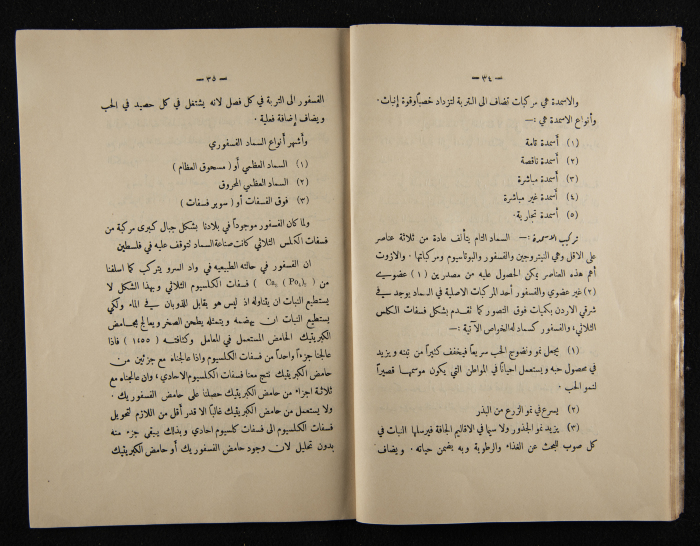 — ٣٤ —
والاسمدة هي مركبات تضاف الى التربة لتزداد خصباً وقوة إنبات ·
وأنواع الاسمدة هي :—
(١) أسمدة تامة
(٢) أسمدة ناقصة
(٣) أسمدة مباشرة
(٤) أسمدة غير مباشرة
(٥) أسمدة تجارية·
تركيب الاسمدة :— السماد التام يتألف عادة من ثلاثة عناصر
على الاقل وهي النيتروجين والفسفور والبوتاسيوم ومركباتها · والازوت
أهم هذه العناصر يمكن الحصول عليه من مصدرين (١) عضوي
(٢) غير عضوي والفسفور أحد المركبات الاصلية في السماد يوجد في
شرقي الاردن بكميات فوق التصور كما تقدم بشكل فسفات الكلس
الثلاثي، والفسفور كسماد له الخواص الآتية :—
(١) يعجل نمو ونضوج الحب سريعاً فيخفف كثيراً من تبنه ويزيد
في محصول حبه ويستعمل احياناً في المواطن التي يكون موسمها قصيراً
لنمو الحب ·
(٢) يسرع في نمو الزرع من البذر
(٣) يزيد نمو الجذور ولا سيما في الاقاليم الجافة فيرسلها النبات في
كل صوب للبحث عن الغذاء والرطوبة وبه يضمن حياته · ويضاف
— ٣٥ —
الفسفور الى التربة في كل فصل لانه يشتغل في كل حصيد في الحب
ويضاف إضافة فعلية ·
وأشهر أنواع السماد الفسفوري
(١) السماد العظمي أو ( مسحوق العظام )
(٢) السماد العظمي المحروق
(٣) فوق الفسفات أو ( سوبر فسفات )
ولما كان الفسفور موجوداً في بلادنا بشكل جبال كبرى مركبة من
فسفات الكلس الثلاثي كانت صناعة السماد تتوقف عليه في فلسطين
ان الفسفور في حالته الطبيعيه في واد السرو يتركب كما اسلفنا
من ( Ca₃ ( Po₄)₂ ) فسفات الكلسيوم الثلاثي وبهذا الشكل لا
يستطيع النبات ان يتناوله اذ ليس هو بقابل للذوبان في الماء ولكي
يستطيع النبات ان يهضمه ويتمثله يطحن الصخر ويعالج بحامض
الكبريتيك الحامض المستعمل في المعامل وكثافته ( ١٤٥٥ ) فاذا
عالجنا جزءاً واحداً من فسفات الكلسيوم واذا عالجناه مع جزئين من
حامض الكبريتيك نتج معنا فسفات الكلسيوم الاحادي، وان عالجناه مع
ثلاثة اجزاء من حامض الكبريتيك حصلنا على حامض الفسفوريك ·
ولا يستعمل من حامض الكبريتيك غالباً الا قدر أقل من اللازم لتحويل
فسفات الكلسيوم الى فسفات كلسيوم احادي وبذلك يبقى جزء منه
بدون تحليل لان وجود حامض الفسفوريك أو حامض الكبريتيك